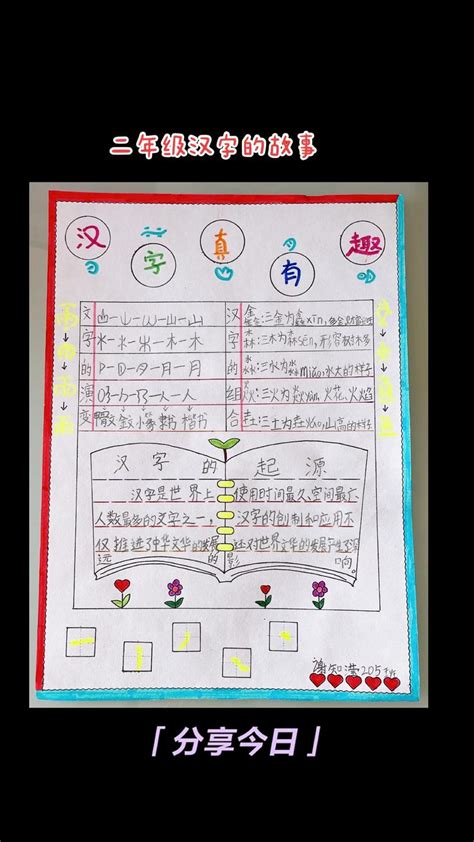 二年级汉字的故事
汉字真有趣
文字的演变
山-山
木-木
月-月
人-人
小篆 隶书 楷书
汉字的组合
鑫:三金为鑫xīn,
森:三木为森sēn,形容树木多
淼:三水为淼miǎo,水大的样子
焱:三火为焱yàn,火花、火焰
垚:三土为垚yáo,山高的样子
汉字的起源
汉字是世界上
使用时间最久、空间最广、
人数最多的文字之一,
汉字的创制和应用不
仅推进了中华文华的发展,
还对世界文华的发展产生了深
远的影响。
謝知滢205班
「分享今日」